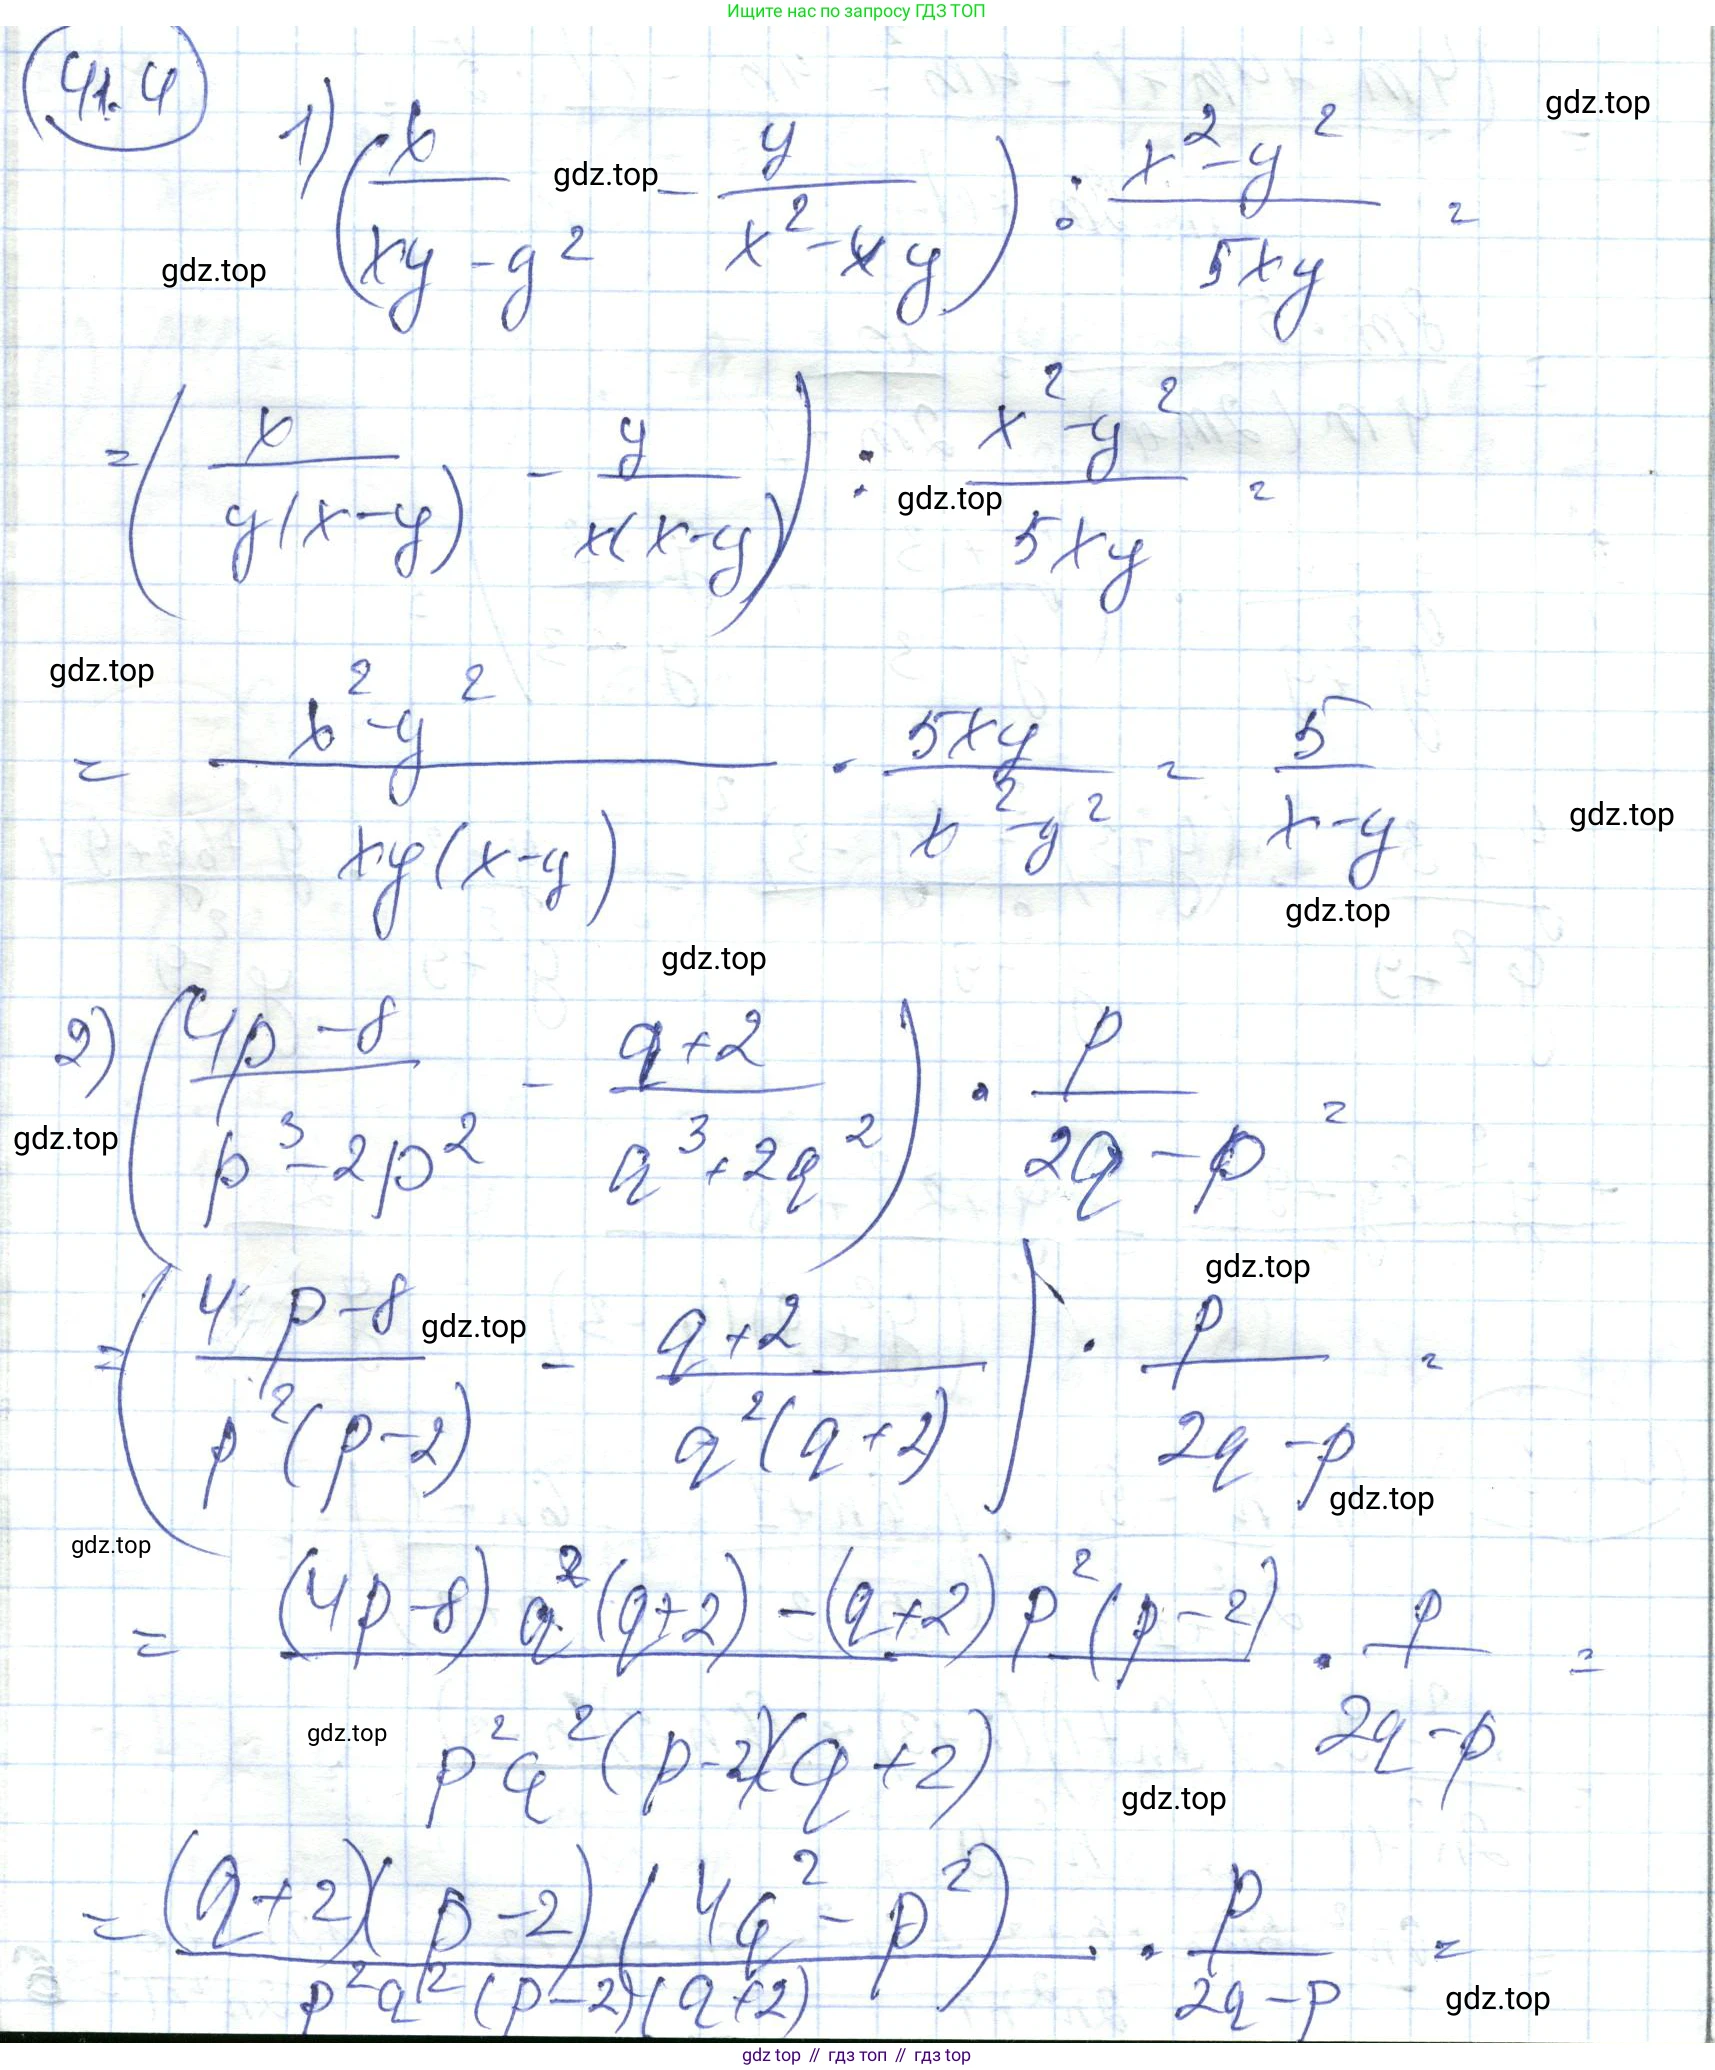 Ищите нас по запросу ГДЗ ТОП
41.4
gdz.top
1) (x/(xy - y²) - y/(x² - xy)) : (x² - y²)/(5xy) =
gdz.top
gdz.top
= (x/(y(x - y)) - y/(x(x - y))) : (x² - y²)/(5xy) =
gdz.top
gdz.top
= (x² - y²)/(xy(x - y)) · (5xy)/(x² - y²) = 5/(x - y)
gdz.top
gdz.top
gdz.top
2) ((4p - 8)/(p³ - 2p²) - (q + 2)/(q³ + 2q²)) · p/(2q - p) =
gdz.top
gdz.top
= ((4p - 8)/(p²(p - 2)) - (q + 2)/(q²(q + 2))) · p/(2q - p) =
gdz.top
gdz.top
gdz.top
= ((4p - 8) q² (q + 2) - (q + 2) p² (p - 2))/(p²q²(p - 2)(q + 2)) · p/(2q - p) =
gdz.top
gdz.top
= ((q + 2)(p - 2)(4q² - p²))/(p²q²(p - 2)(q + 2)) · p/(2q - p) =
gdz.top
gdz top // гдз топ // gdz top